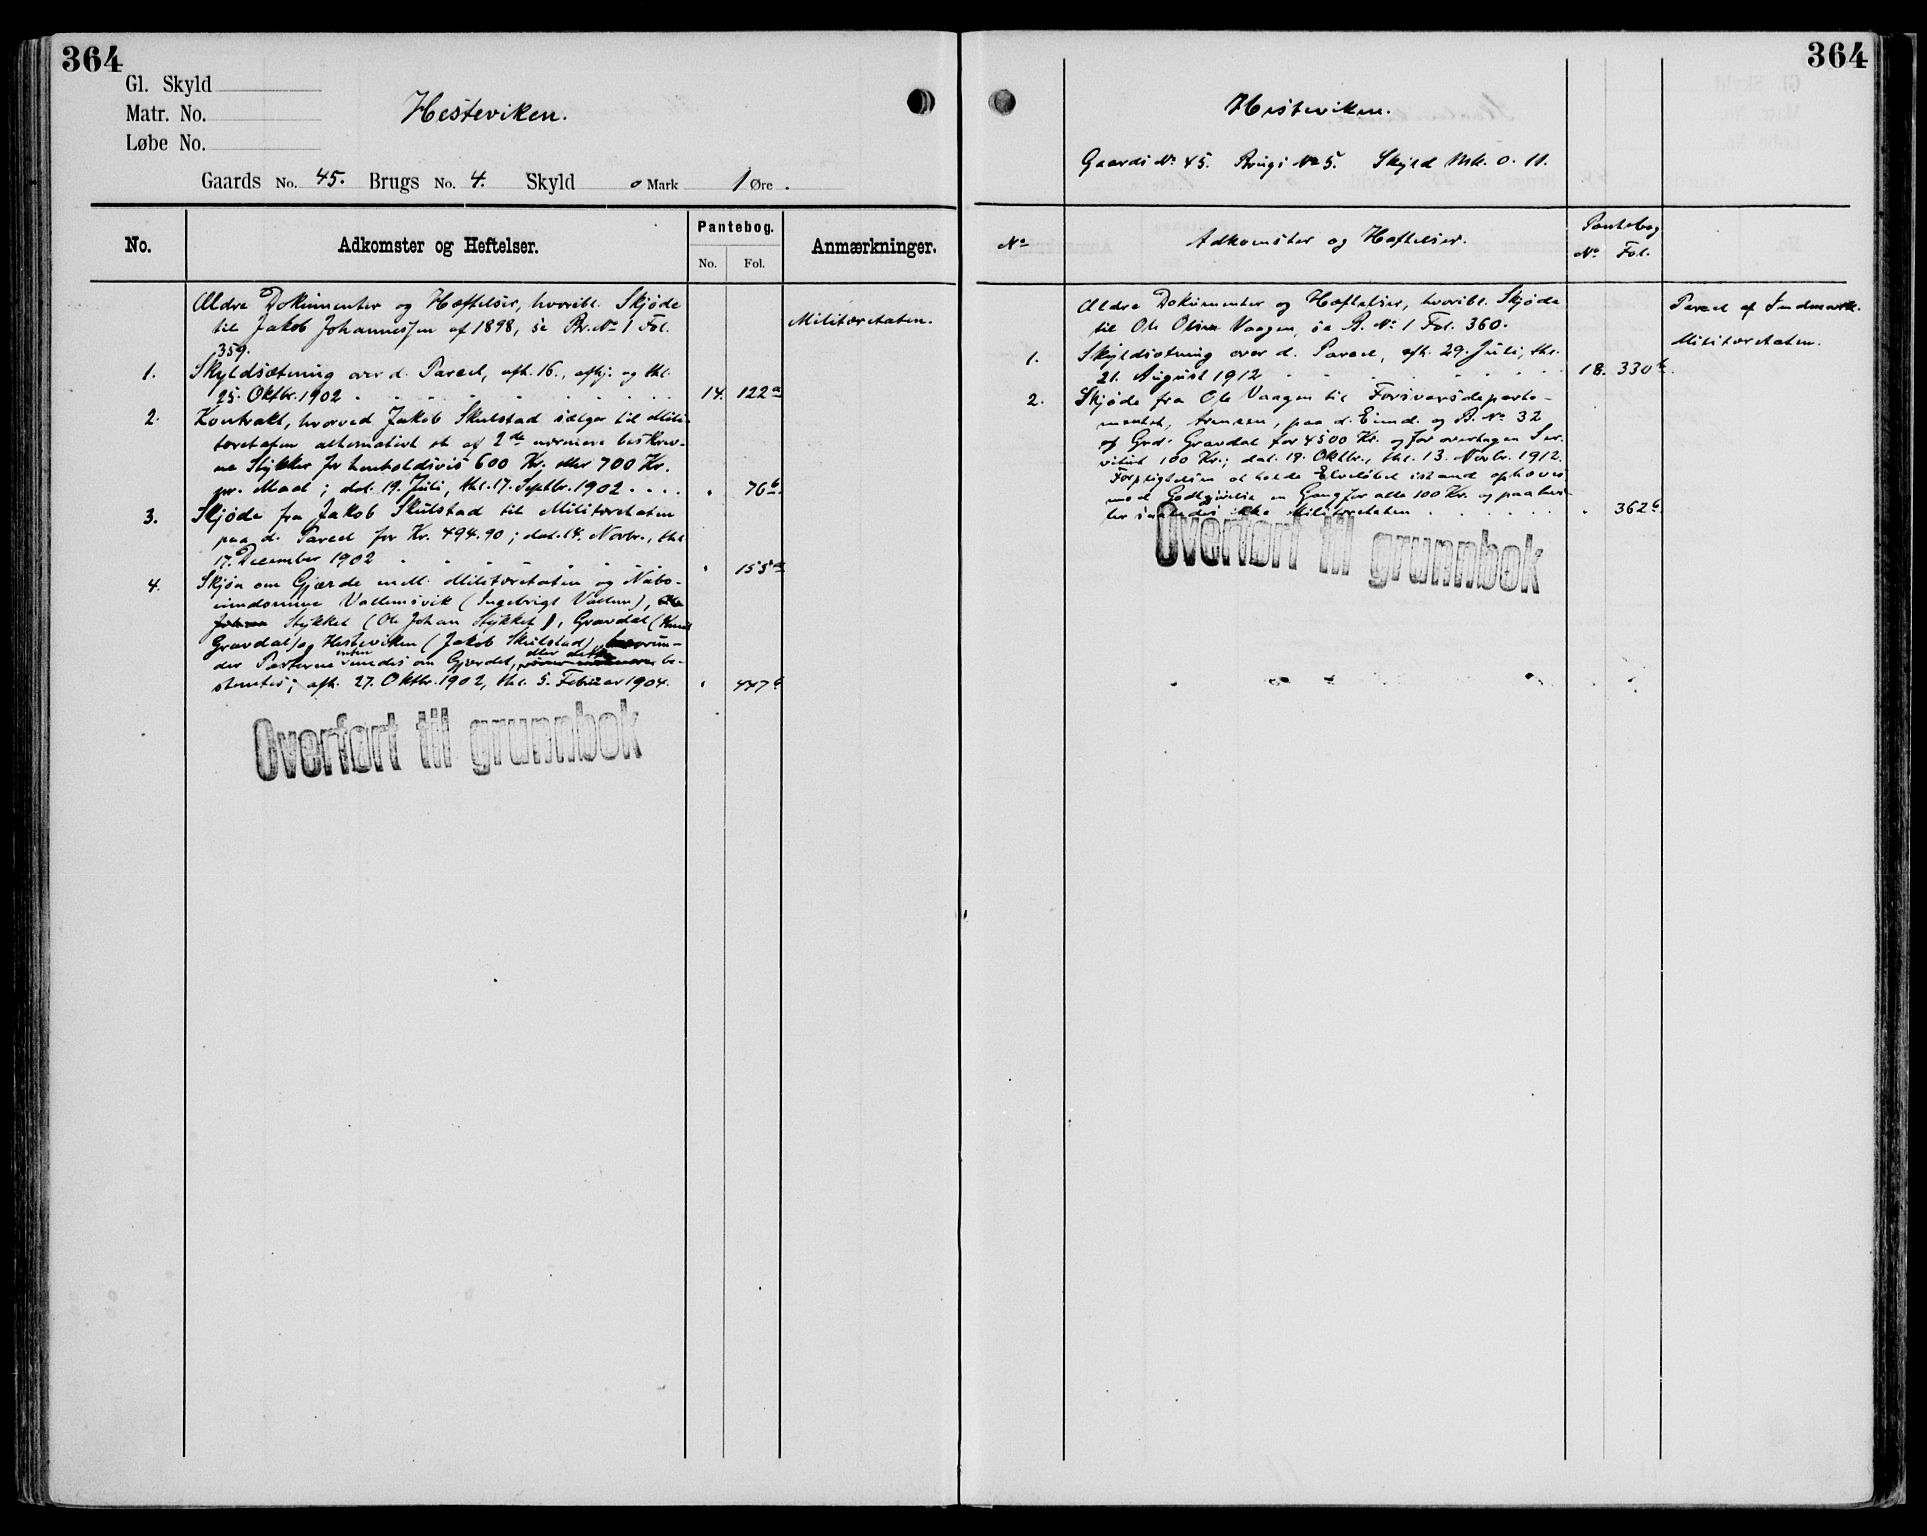 364
Gl. Skyld
Matr. No. Hesteviken.
Løbe No.
Gaards No. 45. Brugs No. 4. Skyld 0 Mark 1 Øre.
No. Adkomster og Heftelser. Pantebog. Anmærkninger.
No. Fol.
Ældre Dokumenter og Hæftelser, hvoribl. Skjøde
til Jakob Johannessen af 1898, se Br. No 1 Fol.
359.
Militæretaten.
1. Skyldsætning over d. Parcel, afh. 16., afhj. og thl.
25. Oktbr. 1902 . . . . 14. 122a
2. Kontrakt, hvorved Jakob Skulstad sælger til Mili-
tæretaten alternativt et af 2de nærmere beskrev-
ne Stykker for henholdsvis 600 Kr. eller 700 Kr.
pr. Maal; dat. 19. Juli, thl. 17. Septbr. 1902 . . . . " 76b
3. Skjøde fra Jakob Skulstad til Militæretaten
paa d. Parcel for Kr. 494.90; dat. 14. Novbr., thl.
17. December 1902 . . . . " 155a
4. Skjøn om Gjærde mell. Militæretaten og Nabo-
eiendomme Vallemsvik (Ingebrigt Vallem),
Stykket (Ole Johan Stykket), Gravdal (Knud
Gravdal) og Hesteviken (Jakob Skulstad),
der Parterne enten enedes om Gjærdet, eller dette be-
stemtes; afh. 27. Oktbr. 1902, thl. 5. Februar 1904. " 447b
Overført til grunnbok
364
Hesteviken.
Gaards No 45. Brugs No 5. Skyld Mk. 0.11.
No Adkomster og Hæftelser. Pantebog
No Fol.
Ældre Dokumenter og Hæftelser, hvoribl. Skjøde
til Ole Olsen Vaagen, se B. No 1 Fol. 360.
Parcel af Indmark.
Militæretaten.
1. Skyldsætning over d. Parcel, afh. 29. Juli, thl.
21. August 1912 . . . . 18. 330b
2. Skjøde fra Ole Vaagen til Forsvarsdeparte-
mentet, paa d. Eiend. og B. No 32
af Grd. Gravdal for 4500 Kr. og for overtagen Ser-
vitut 100 Kr.; dat. 19. Oktbr., thl. 13. Novbr. 1912.
Forpligtelsen at holde Elveløbet istand ophæves
mod Godtgjørelse en Gang for alle 100 Kr. og paahvi-
ler saaledes ikke Militæretaten . . . . " 362b
Overført til grunnbok